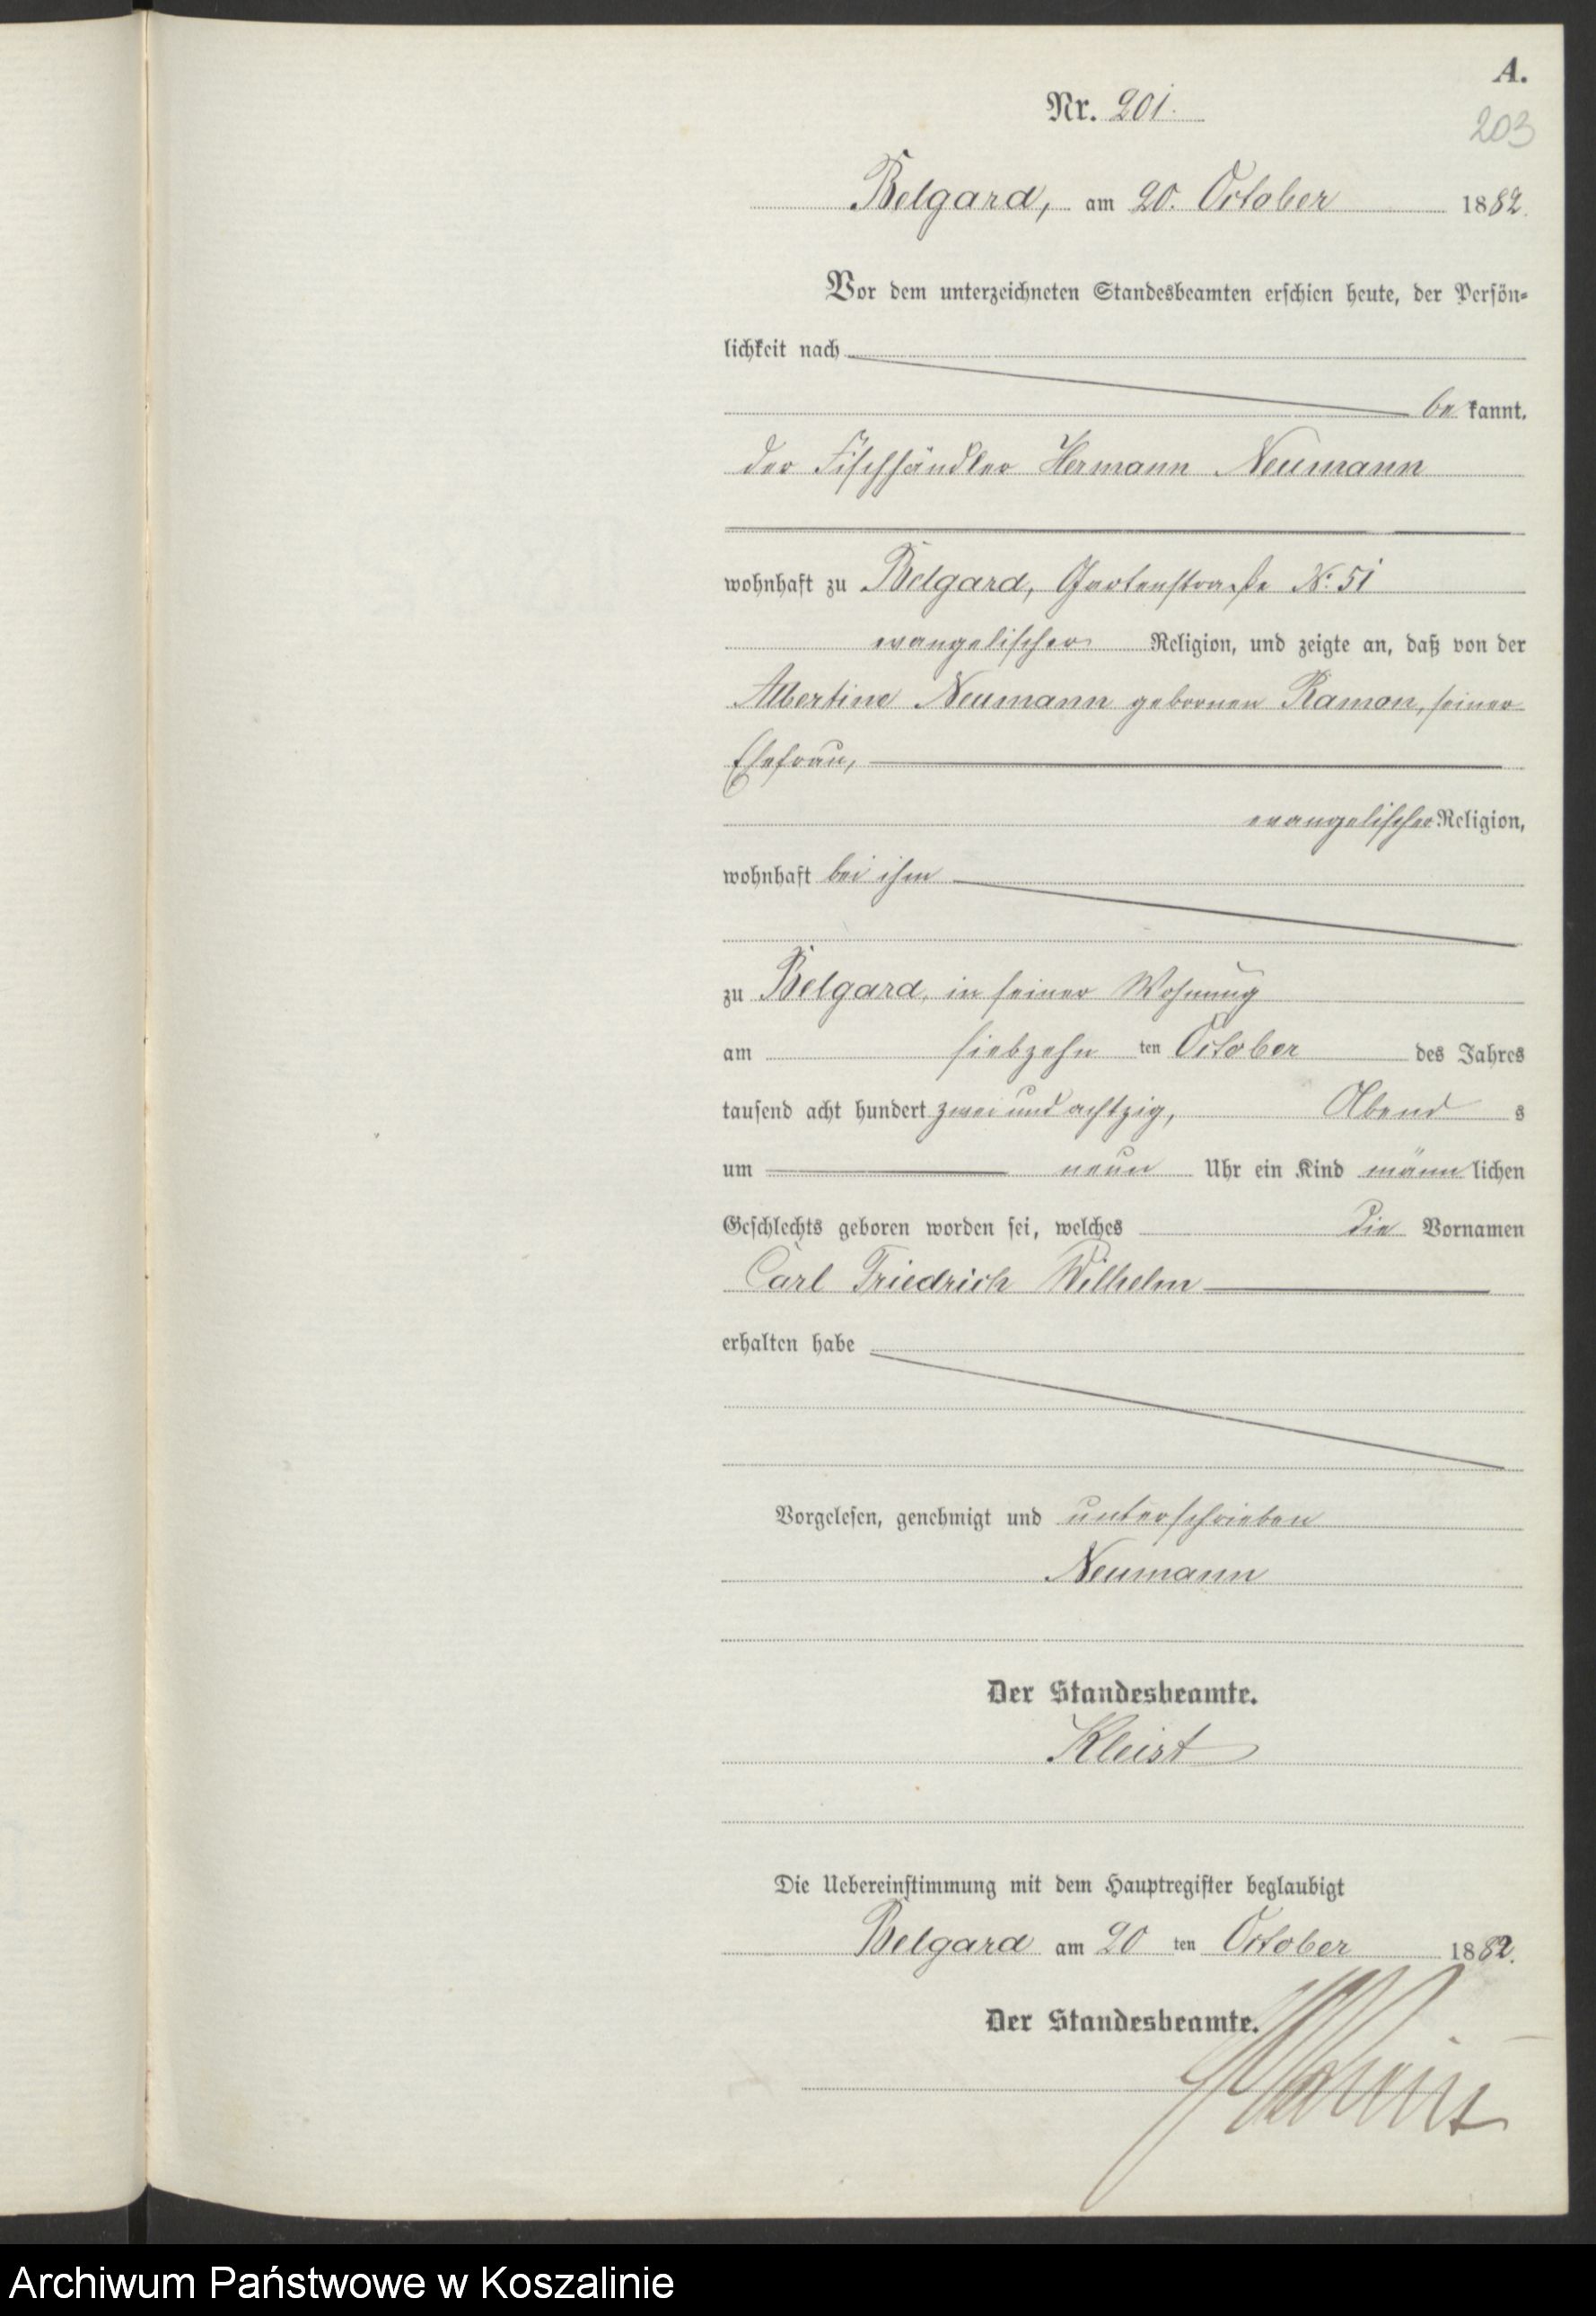 A.
Nr. 201.
203
Belgard, am 20. October 1882.
Vor dem unterzeichneten Standesbeamten erschien heute, der Persön-
lichkeit nach
be kannt,
der Fischhändler Hermann Neumann
wohnhaft zu Belgard, Gartenstraße No. 51
evangelischer Religion, und zeigte an, daß von der
Albertine Neumann gebornen Ramon, seiner
Ehefrau,
evangelischer Religion,
wohnhaft bei ihm
zu Belgard, in seiner Wohnung
am siebzehn ten October des Jahres
tausend acht hundert zwei und achtzig, Abend s
um neun Uhr ein Kind männ lichen
Geschlechts geboren worden sei, welches die Vornamen
Carl Friedrich Wilhelm
erhalten habe
Vorgelesen, genehmigt und unterschrieben
Neumann
Der Standesbeamte.
Kleist
Die Uebereinstimmung mit dem Hauptregister beglaubigt
Belgard am 20 ten October 1882.
Der Standesbeamte.
Archiwum Państwowe w Koszalinie